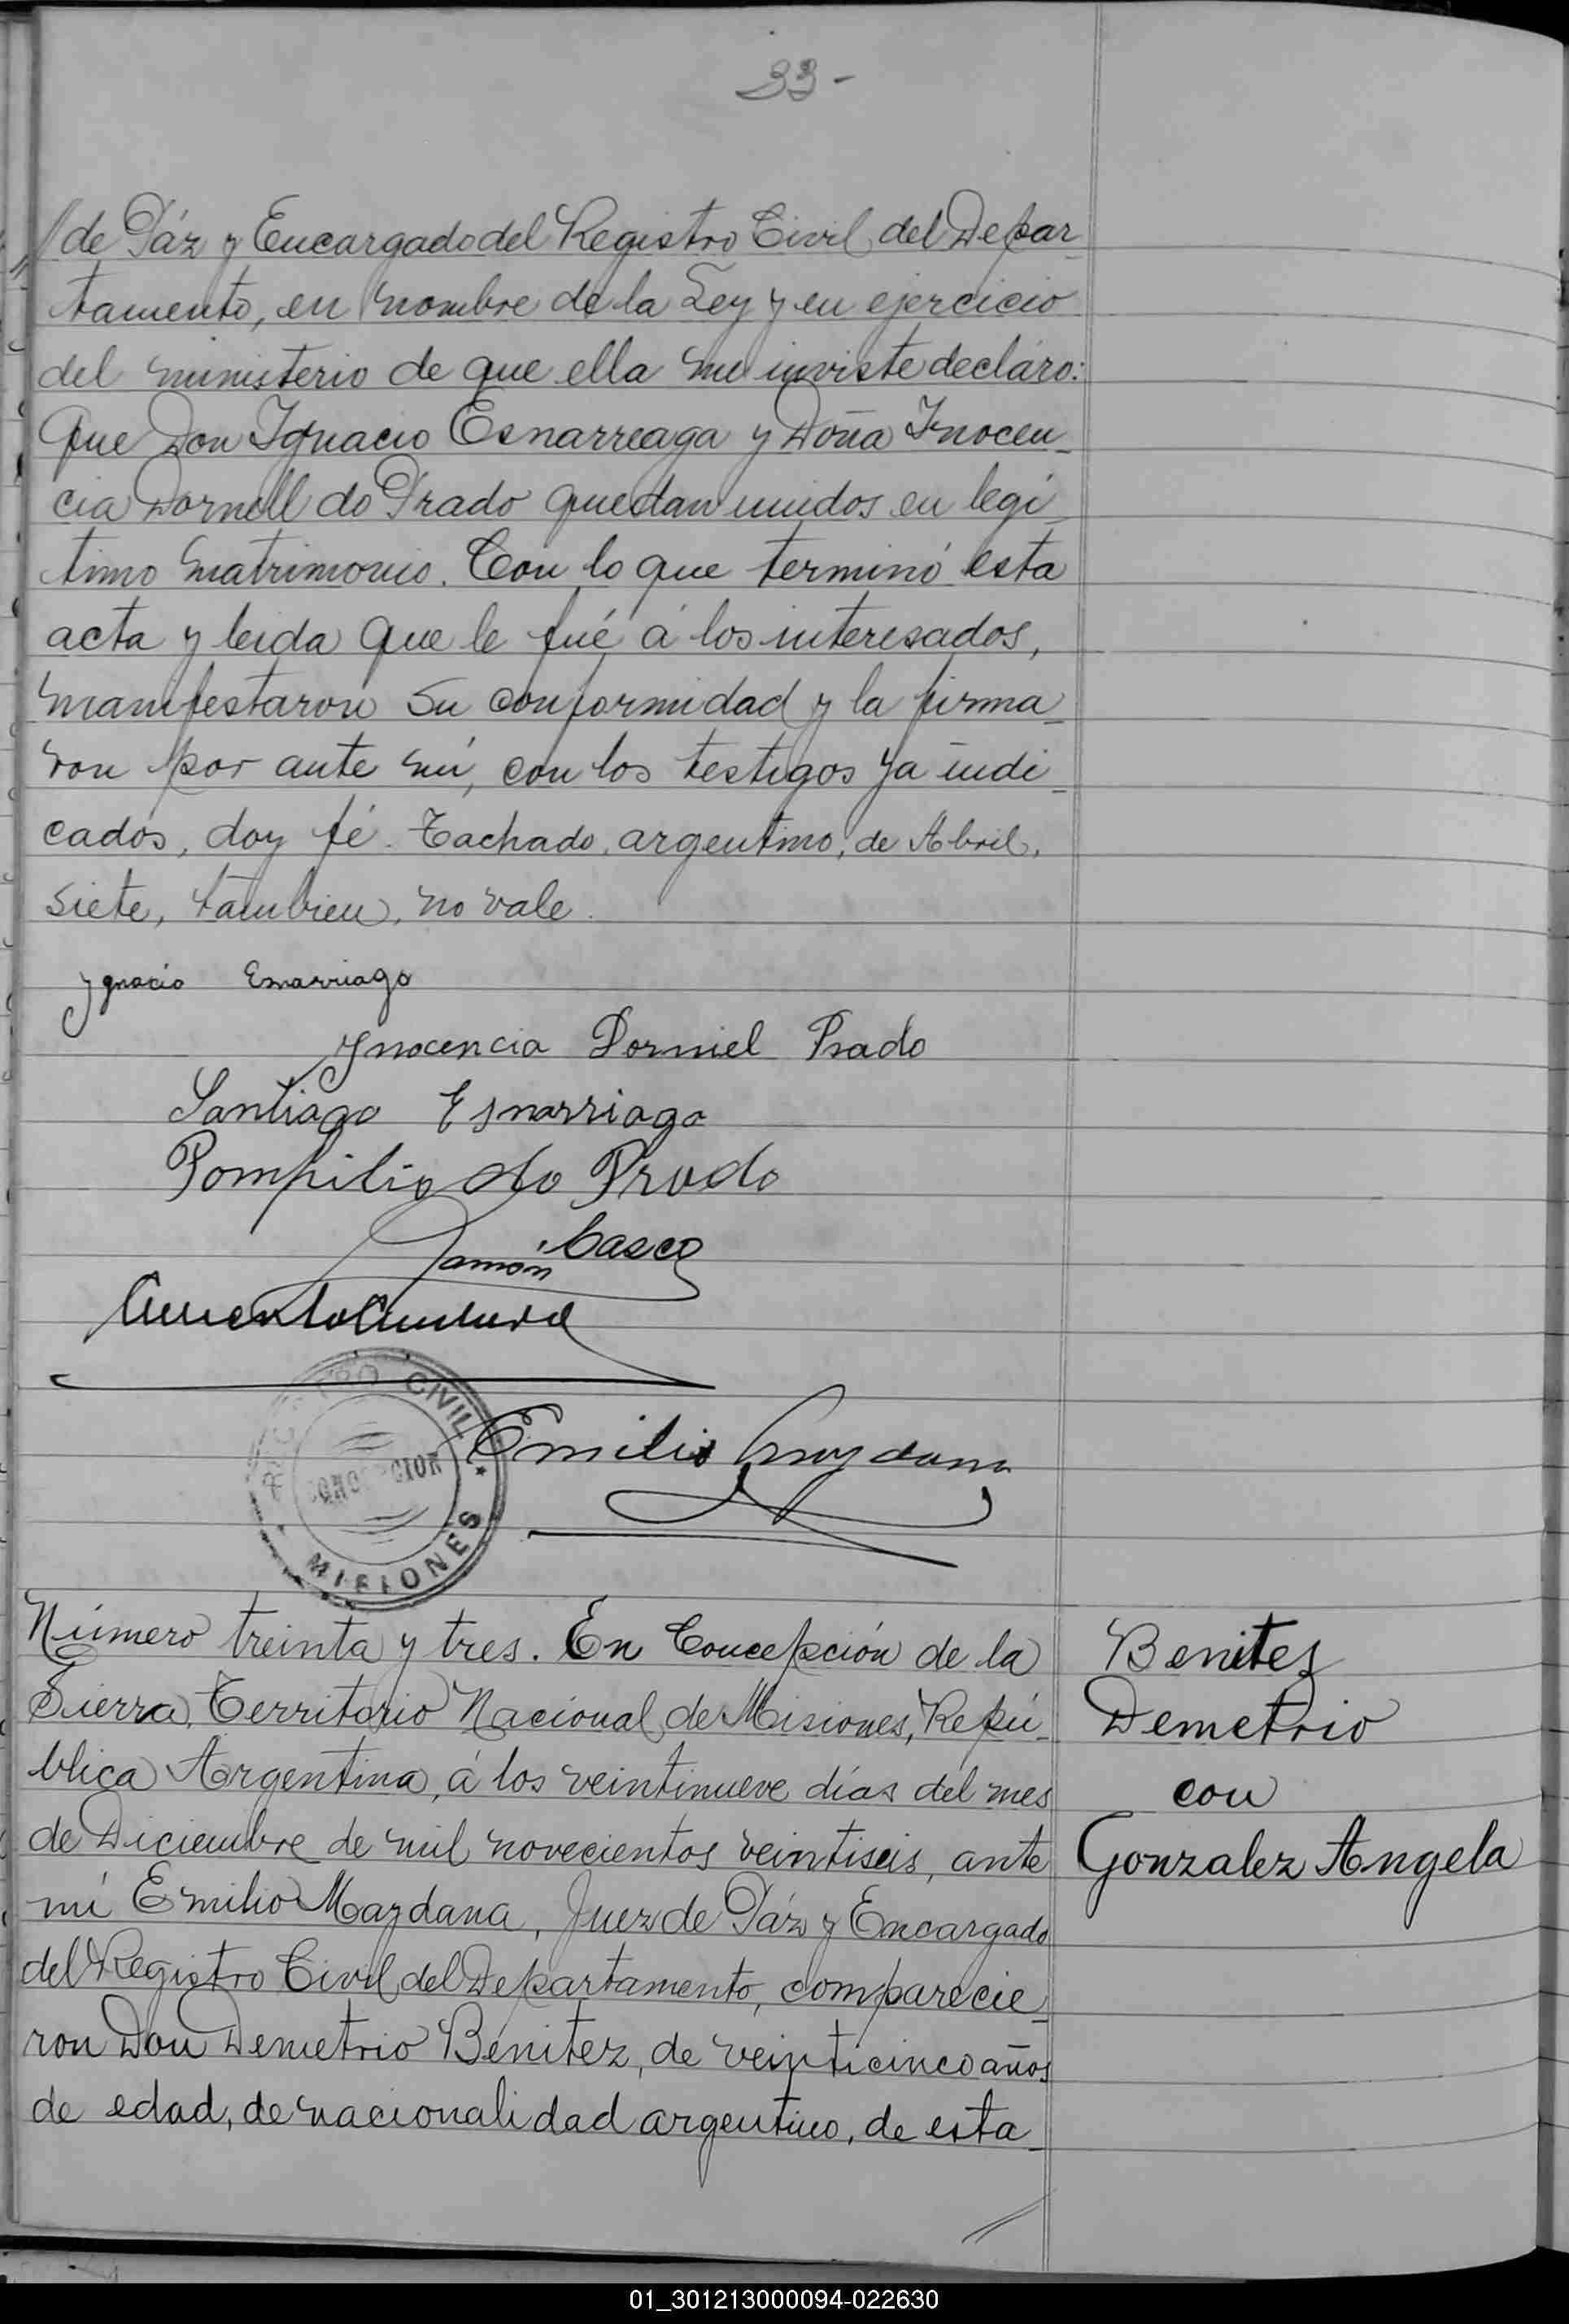 33-
de Páz y Encargado del Registro Civil del Depar
tamento, en nombre de la Ley y en ejercicio
del ministerio de que ella me inviste decláro:
Que Don Ignacio Esnarreaga y Doña Inocen
cia Dornell do Prado quedan unidos en legí
timo matrimonio. Con lo que terminó esta
acta y leida que le fué á los interesados,
manifestaron su conformidad y la firma
ron por ante mí, con los testigos ya indi
cados, doy fé. Tachado, argentino, de Abril,
siete, tambien, no vale.
Ygnacio Esnarriaga
Ynocencia Dorniel Prado
Santiago Esnarriaga
Pompilio do Prado
Ramón Casco
REGISTRO CIVIL
CONCEPCION
MISIONES
Emilio Mazdana
Número treinta y tres. En Concepción de la
Sierra, Territorio Nacional de Misiones, Repú-
blica Argentina, á los veintinueve días del mes
de Diciembre de mil novecientos veintiseis, ante
mí Emilio Mazdana, Juez de Páz y Encargado
del Registro Civil del Departamento, comparecie
ron Don Demetrio Benitez, de veinticinco años
de edad, de nacionalidad argentino, de esta
Benites
Demetrio
con
Gonzalez Angela
01_301213000094-022630